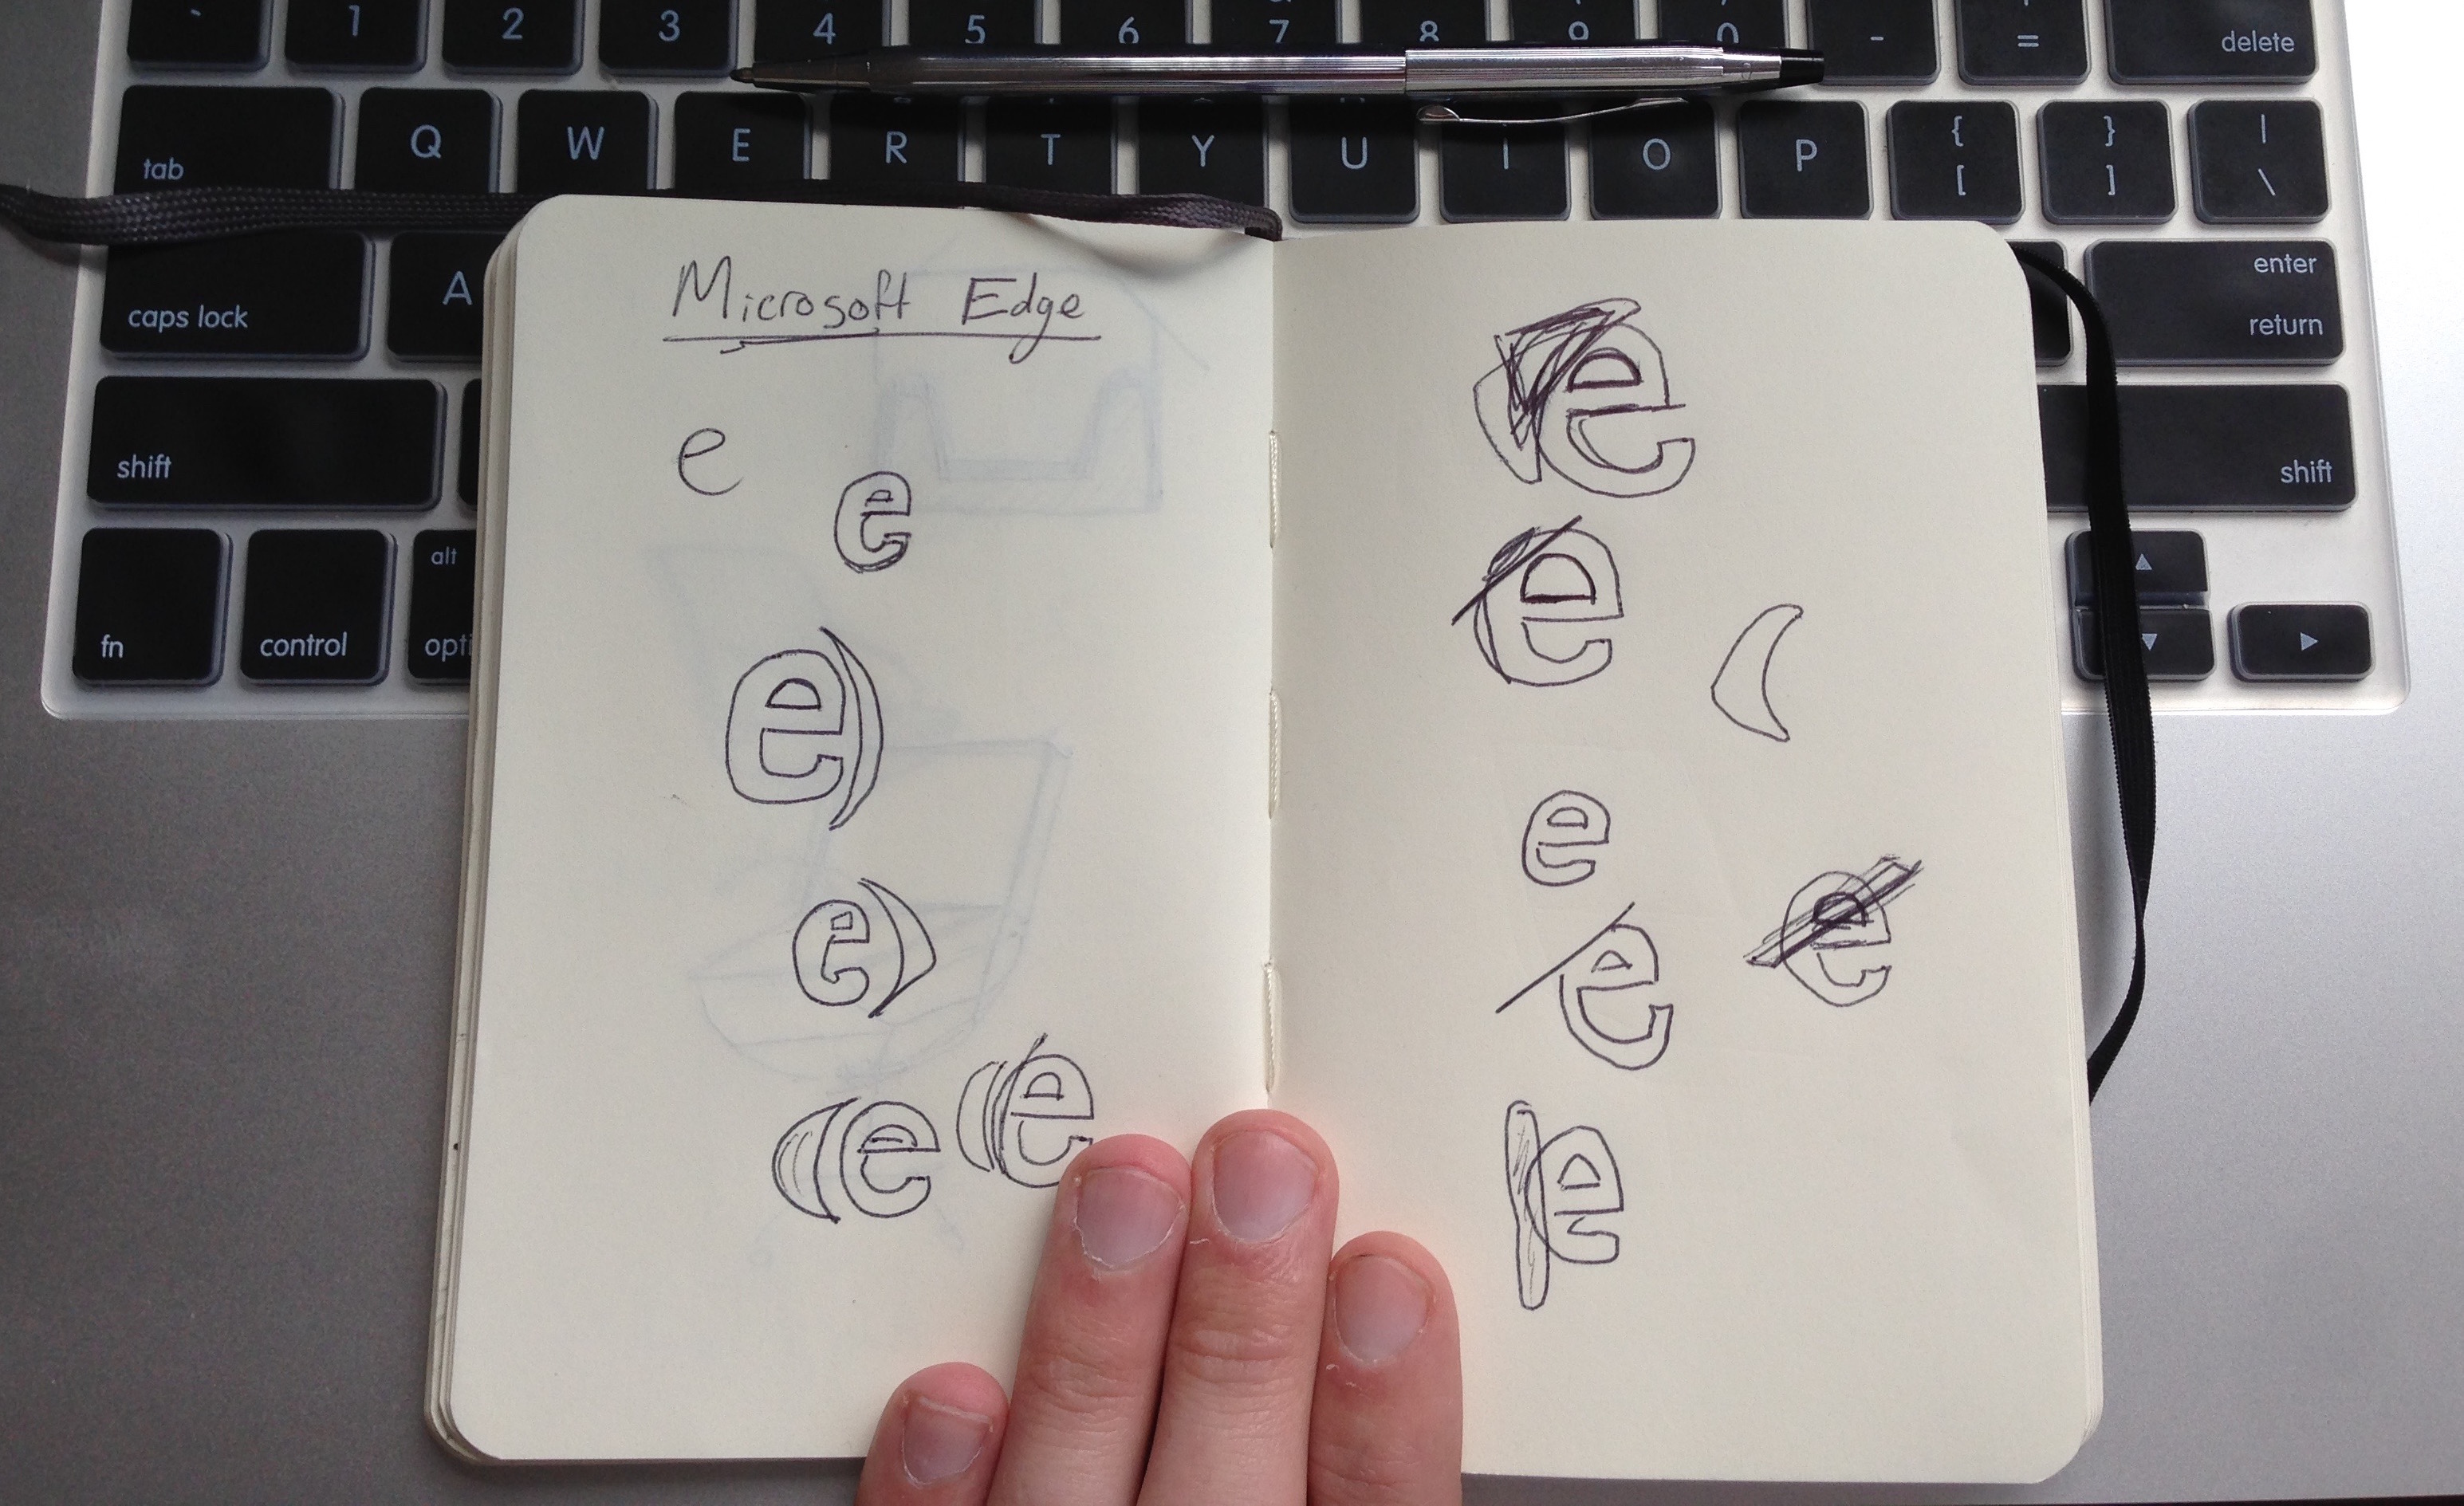 ` 1 2 3 4 5 6 7 8 9 0 - = delete
tab Q W E R T Y U I O P { [ } ] | \
caps lock A enter return
shift shift
fn control alt opti
Microsoft Edge
e
e
e)
e)
(e (e
e
e
e
e
e
e